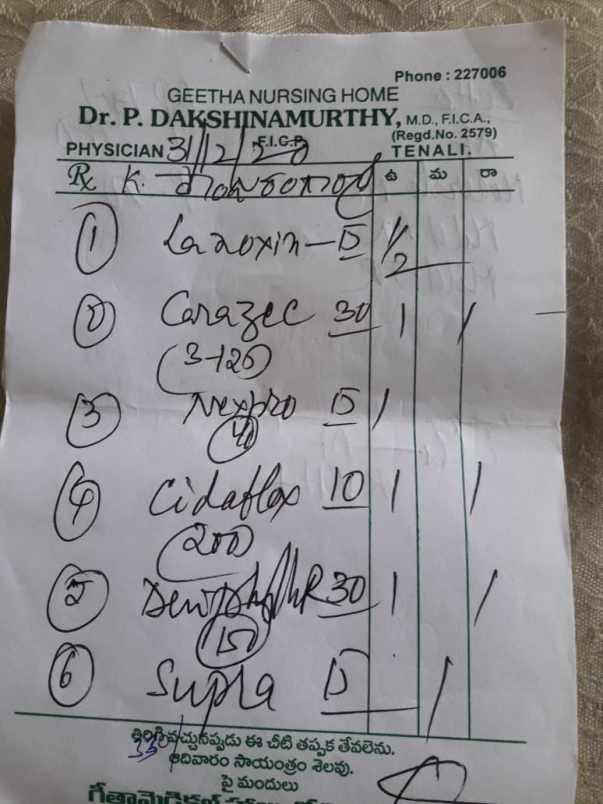 Phone : 227006
GEETHA NURSING HOME
Dr. P. DAKSHINAMURTHY, M.D., F.I.C.A.,
F.I.C.P. (Regd.No. 2579)
PHYSICIAN 31/12/20 TENALI.
Rx K. ఉ మ రా
1 Lanoxin - 15 1/2
2 Carazec 30 1 1
(3-125)
3 Nexpro 15 1
40
4 Cidaflox 10 1 1
200
5 30 1 1
150
6 Supra 15 1
తిరిగివచ్చునప్పుడు ఈ చీటి తప్పక తేవలెను.
ఆదివారం సాయంత్రం శెలవు.
పై మందులు